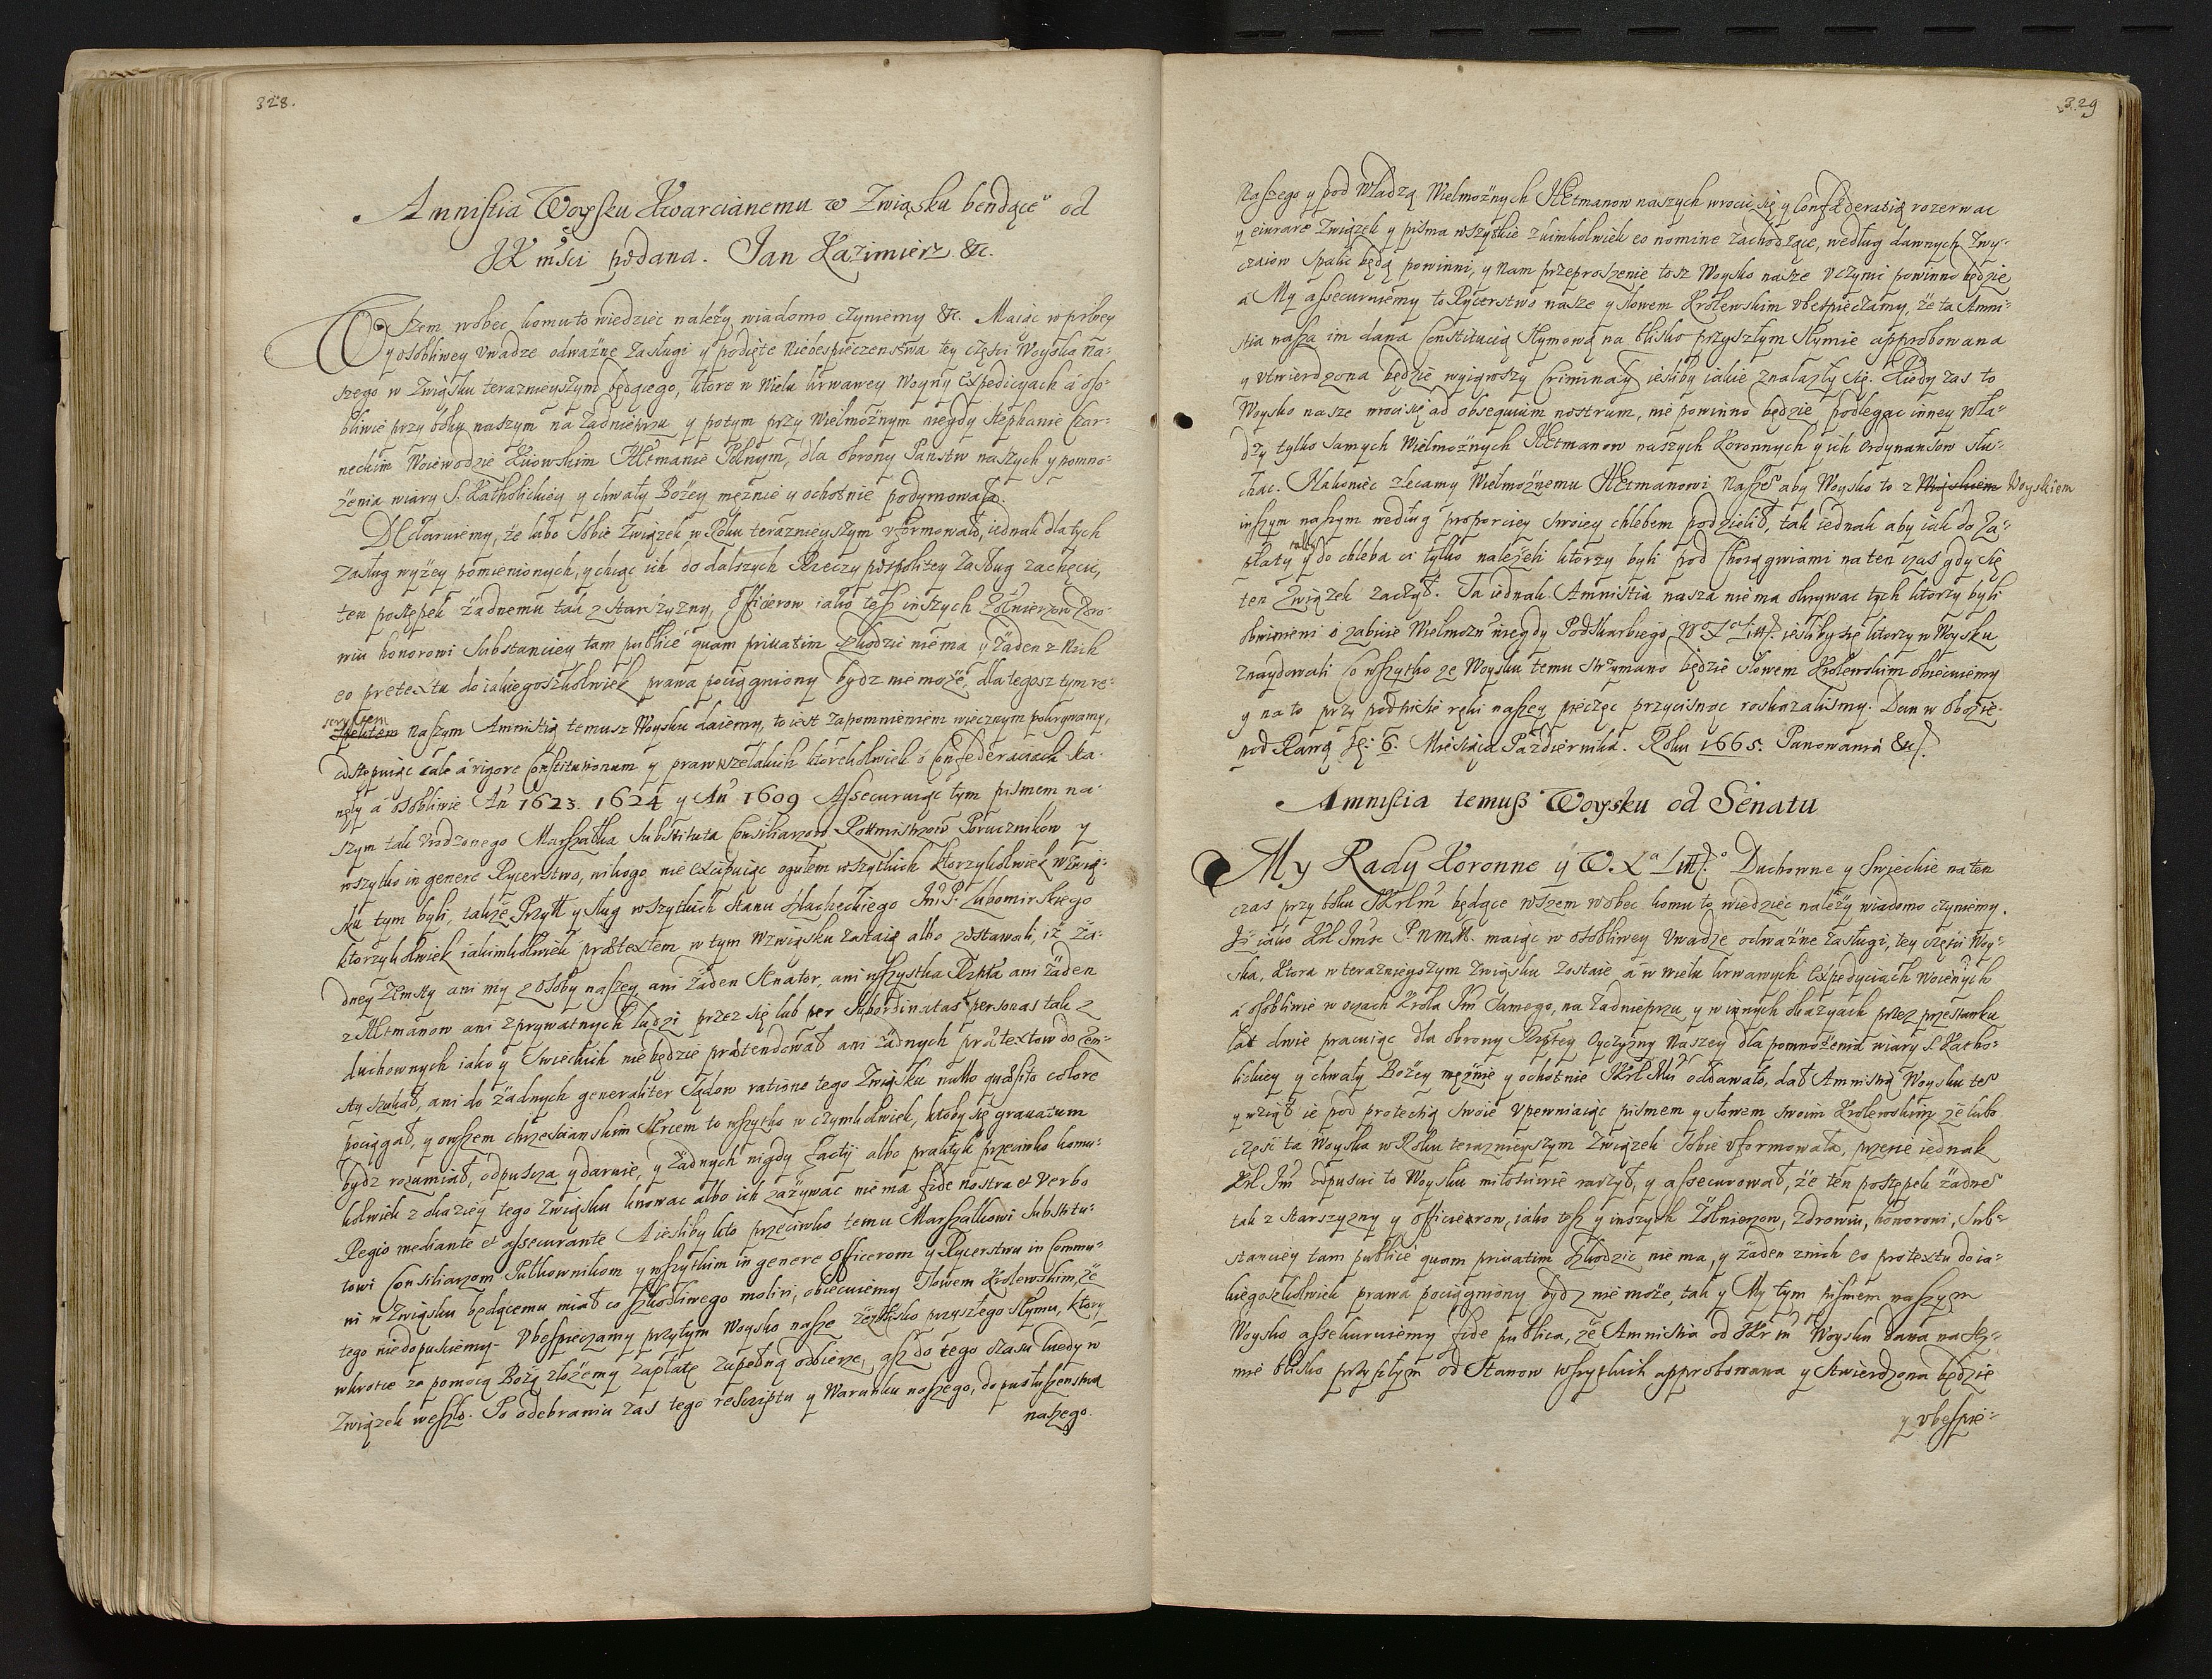 328.
Amnistia Woysku Kwarcianemu w Związku bendące° od
JK mści podana. Jan Kazimierz &c.
Wszem wobec komu to wiedzieć należy wiadomo czyniemy &c. Maiąc w pilney
y osobliwey uwadze odważne zasługi y podięte niebespieczenstwa tey części Woyska na-
szego w Związku teraznieyszym będącego, ktore w wielu krwawey Woyny Expedicyach á oso-
bliwie przy boku naszym na Zadnieprzu y potym przy Wielmożnym niegdy Stephanie Czar-
neckim Woiewodzie Kiiowskim Hetmanie Polnym, dla obrony Panstw naszych y pomno-
żenia wiary S. Katholickiey y chwały Bożey mężnie y ochotnie podymowała.
Declaruiemy, że lubo sobie Związek w Roku teraznieyszym uformował, iednak dla tych
zasług wyżey pomienionych, y chcąc ich do dalszych Rzeczy pospolitey zasług zachęcić,
ten postępek żadnemu tak z Starszyzny, Officierow iako tesz inszych Żołnierzow Zdro-
wiu honorowi Substanciey tam publicè quam privatim szkodzić niema y żaden z Nich
eo pretextu do iakiegoszkolwiek prawa pociągniony bydz nie może, dla tegosz tym re-
scryptem naszym Amnistią temusz Woysku daiemy, to iest zapomnieniem wiecznym pokrywamy,
odstępuiąc cale á rigore Constitutionum y praw wszelakich ktorekolwiek o Confederaciach sta-
nęły á osobliwie Añ 1623 1624 y Añ 1609 Assecuruiąc tym pismem na-
szym tak Urodzonego Marszałka Substituta Consiliarzow Rottmistrzow Porucznikow y
wszytko in genere Rycerstwo, nikogo nie excipuiąc ogułem wszytkich ktorzykolwiek w Związ-
ku tym byli, także Przytt y sług wszytkich stanu szlacheckiego Jm̃ P. Lubomirskiego
ktorzykolwiek iakimkolwiek prætextem w tym Wzwiąsku zostaią albo zostawali, iż ża-
dney zemsty ani my z osoby naszey, ani żaden Senator, ani wszystka Rzptã ani żaden
z Hetmanow ani z prywatnych ludzi przez się lub per subordinatas personas tak z
duchownych iako y Swieckich nie będzie prætendował ani żadnych prætextow do zem-
sty szukał, ani do żadnych generaliter sądow ratione tego Związku nullo quæsito colore
pociągał, y owszem chrzescianskim sercem to wszytko w czymkolwiek, ktoby się gravatum
bydz rozumiał, odpuscza y daruie, y żadnych nigdy factij albo praktyk przeciwko komu-
kolwiek z okaziey tego Związku knować albo ich zażywać nie ma fide nostra et Verbo
Regio mediante et assecurante A iesliby kto przeciwko temu Marszałkowi Substitu-
towi Consiliarzom Pułkownikom y wszytkim in genere Officerom y Rycerstwu in Commu-
ni w Związku będącemu miał co szkodliwego moliri, obiecuiemy Słowem Krolewskim, że
tego niedopusciemy. Ubespieczamy przytym Woysko nasze że blisko przyszłego Seymu, ktory
wkrotce za pomocą Bożą złożemy zapłatę zupełną odbierze, asz do tego czasu kiedy w
Związek weszło. Po odebraniu zas tego rescriptu y Warunku naszego, do posłuszenstwa
naszego.
329
Naszego y pod władzą Wielmożnych Hetmanow naszych wrocić się y Confæderatią rozerwać
y eiurare Związek y pisma wszytkie z kimkolwiek eo nomine zachodzące, według dawnych zwy-
czaiow spalić będą powinni, y nam przeproszenie tosz Woysko nasze uczynić powinno będzie
á My assecuruiemy to Rycerstwo nasze y słowem Krolewskim ubespieczamy, że ta Amni-
stia nasza im dana Constitucią Seymową na blisko przyszłym Seymie approbowana
y utwierdzona będzie wyiąwszy Criminały iesliby iakie znalazły się. Kiedy zas to
Woysko nasze wroci się ad obsequium nostrum, nie powinno będzie podlegać inney wła-
dzy tylko samych Wielmożnych Hetmanow naszych Koronnych y ich Ordynansow słu-
chać. Nakoniec zlecamy Wielmożnemu Hetmanowi Nasze° aby Woysko to z Woyskiem
inszym naszym według proporciey swoiey chlebem podzielił, tak iednak aby iak do za-
płaty tak y do chleba ci tylko należeli ktorzy byli pod Chorągwiami na ten czas gdy się
ten Związek zaczął. Ta iednak Amnistia nasza nie ma okrywać tych ktorzy byli
obwinieni o zabicie Wielmożn° niegdy Podskarbiego W° X° Litt. iesliby się ktorzy w Woysku
znaydowali Co wszytko ze Woysku temu strzymano będzie słowem Krolewskim obiecuiemy
y na to przy podpisie ręki naszey pieczęć przycisnąć roskazalismy. Dan w obozie
pod Rawą d. 6. Miesiąca Pazdiernika. Roku 1665. Panowania &c.
Amnistia temusz Woysku od Senatu
My Rady Koronne ÿ W. X° Litt° Duchowne y Swieckie na ten
czas przy boku JKrLm̃ będące wszem wobec komu to wiedzieć należy wiadomo czyniemy.
Jż iako Krl Jmsc P. N. M. maiąc w osobliwey uwadze odważne zasługi, tey części Woy-
ska, ktora w teraznieyszym związku zostaie, á w wielu krwawych Expedyciach woiennych
á osobliwie w oczach Krola Jm̃ samego, na Zadnieprzu, y w innych okazyach przez przestanku
lat dwie pracuiąc dla obrony Rzptey Oyczyzny naszey dla pomnożenia wiary S. Katho-
lickiey y chwały Bożey mężnie y ochotnie JKrl Mci oddawało, dał Amnistią Woysku te°
y wziął ie pod protectią swoie upewniaiąc pismem y słowem swoim Krolewskim, że lubo
część ta Woyska w Roku teraznieyszym Związek sobie uformowała, przecie iednak
Krl Jm̃ odpuscić to Woysku miłosciwie raczył, y assecurował, że ten postępek żadne°
tak z Starszyzny y Officierow, iako tesz y inszych Żołnierzow, zdrowiu, honorowi, Sub-
stanciey tam publicè quam privatim szkodzic nie ma, y żaden znich eo protextu do ia-
kiegoszkolwiek prawa pociągniony bydz nie może, tak y My tym pismem naszym
Woysko assekuruiemy fide publica, że Amnistia od JKr m̃ Woysku dana na Sey-
mie blisko przyszłym od Stanow wszytkich approbowana y stwierdzona będzie
y ubespie-